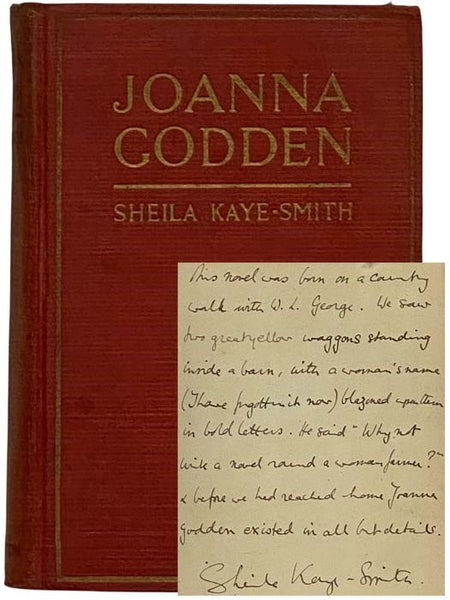 JOANNA
GODDEN
SHEILA KAYE-SMITH
This novel was born on a country
walk with W. L. George. We saw
two great yellow waggons standing
inside a barn, with a woman's name
(I have forgotten it now) blazoned upon them
in bold letters. He said "Why not
write a novel round a woman farmer?"
& before we had reached home Joanna
Godden existed in all but details.
Sheila Kaye-Smith.